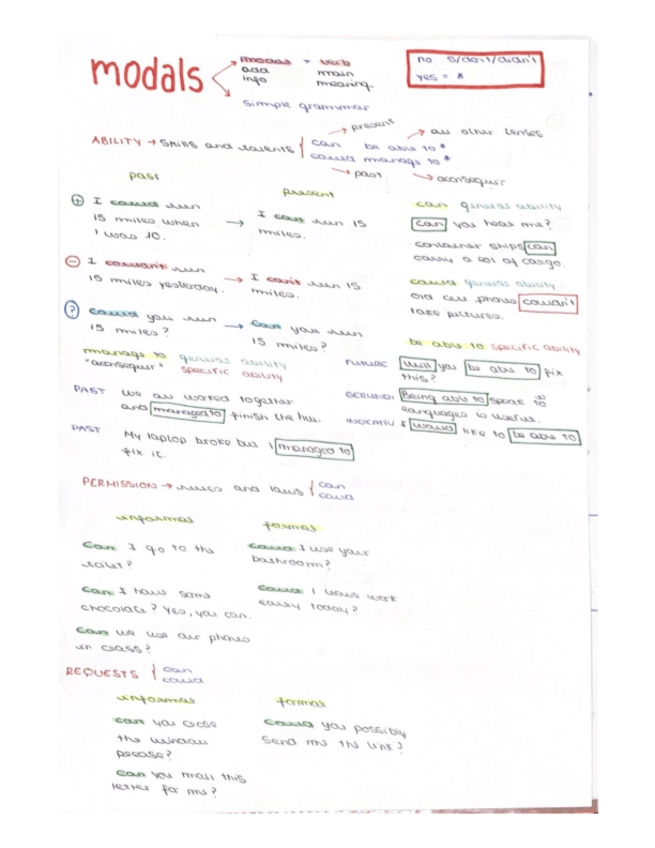 modals
modals + verb
add main
info meaning.
simple grammar
no s/don't/didn't
yes = *
ABILITY → skills and talents
→ present → all other tenses
can be able to *
could manage to *
→ past → aconsequir
past
present
+ I could run
15 miles when
I was 10.
→ I can run 15
miles.
- I couldn't run
15 miles yesterday.
→ I can't run 15
miles.
? Could you run
15 miles?
→ Can you run
15 miles?
can general ability
Can you hear me?
container ships can
carry a lot of cargo.
could general ability
old cell phones couldn't
take pictures.
manage to general ability
"aconsequir" specific ability
PAST We all worked together
and managed to finish the
PAST My laptop broke but I managed to
fix it.
be able to specific ability
FUTURE Will you be able to fix
this?
GERUND Being able to speak
languages is useful.
INDICATIV I would like to be able to
PERMISSION → rules and laws
can
could
informal
formal
Can I go to the
toilet?
Can I have some
chocolate? Yes, you can.
Can we use our phones
in class?
Could I use your
bathroom?
Could I leave work
early today?
REQUESTS
can
could
informal
formal
can you close
the window
please?
Can you mail this
letter for me?
Could you possibly
send me the link?